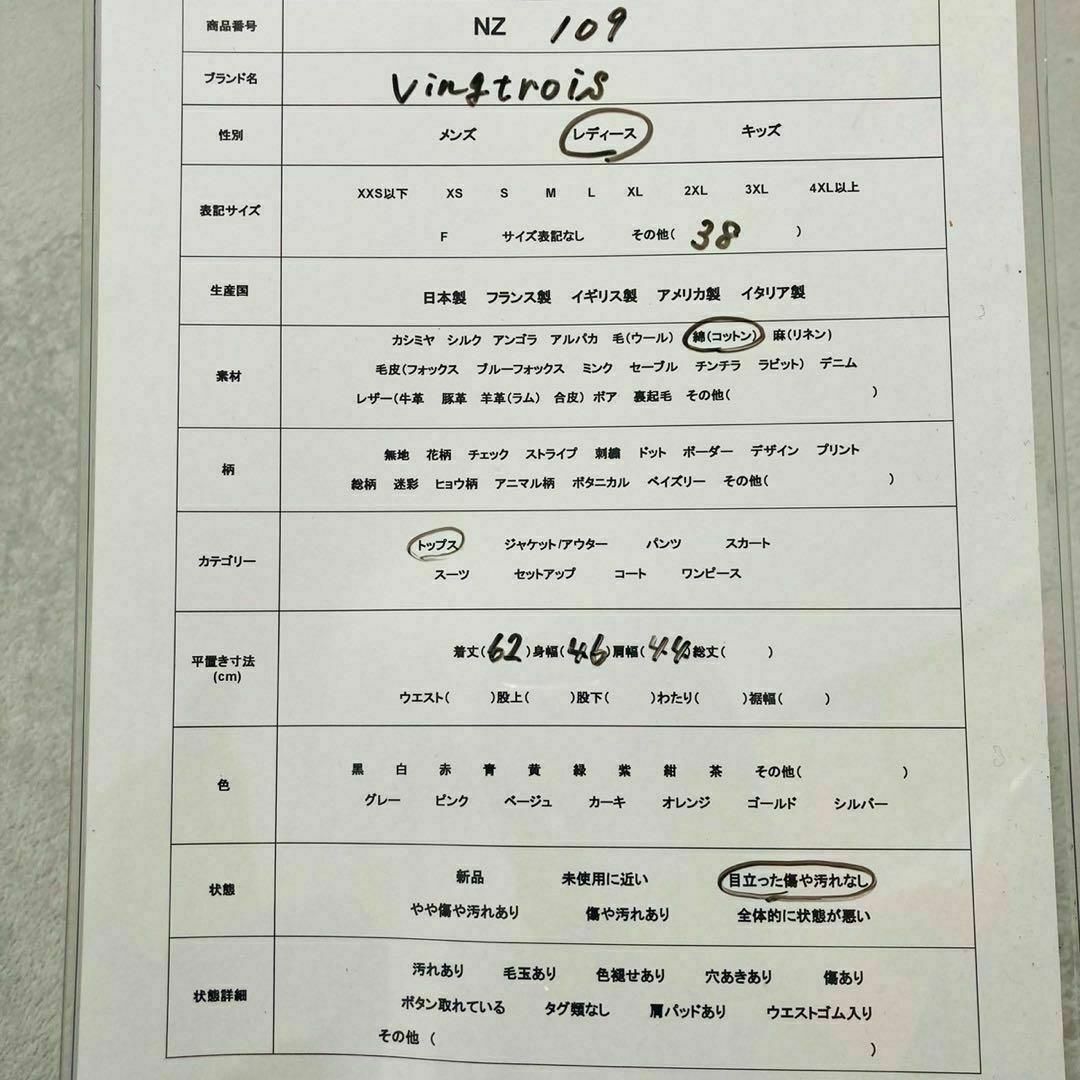 商品番号 NZ 109
ブランド名 vingtrois
性別 メンズ レディース キッズ
表記サイズ
XXS以下 XS S M L XL 2XL 3XL 4XL以上
F サイズ表記なし その他( 38 )
生産国 日本製 フランス製 イギリス製 アメリカ製 イタリア製
素材
カシミヤ シルク アンゴラ アルパカ 毛(ウール) 綿(コットン) 麻(リネン)
毛皮(フォックス ブルーフォックス ミンク セーブル チンチラ ラビット) デニム
レザー(牛革 豚革 羊革(ラム) 合皮) ボア 裏起毛 その他( )
柄
無地 花柄 チェック ストライプ 刺繍 ドット ボーダー デザイン プリント
総柄 迷彩 ヒョウ柄 アニマル柄 ボタニカル ペイズリー その他( )
カテゴリー
トップス ジャケット/アウター パンツ スカート
スーツ セットアップ コート ワンピース
平置き寸法
(cm)
着丈(62)身幅(46)肩幅(44)総丈( )
ウエスト( )股上( )股下( )わたり( )裾幅( )
色
黒 白 赤 青 黄 緑 紫 紺 茶 その他( )
グレー ピンク ベージュ カーキ オレンジ ゴールド シルバー
状態
新品 未使用に近い 目立った傷や汚れなし
やや傷や汚れあり 傷や汚れあり 全体的に状態が悪い
状態詳細
汚れあり 毛玉あり 色褪せあり 穴あきあり 傷あり
ボタン取れている タグ類なし 肩パッドあり ウエストゴム入り
その他 ( )